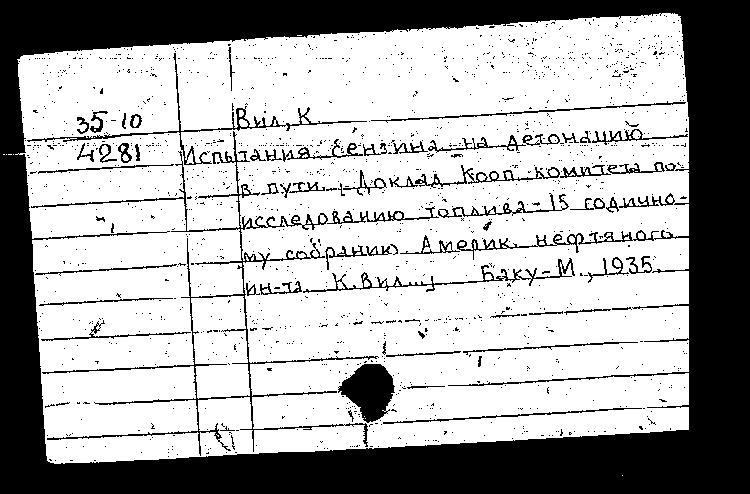 35-10 Вил, К
4281 Испытания бензина на детонацию
в пути. Доклад Кооп. комитета по
исследованию топлива - 15 годично-
му собранию Америк. нефтяного
ин-та. К. Вил... Баку-М., 1935.